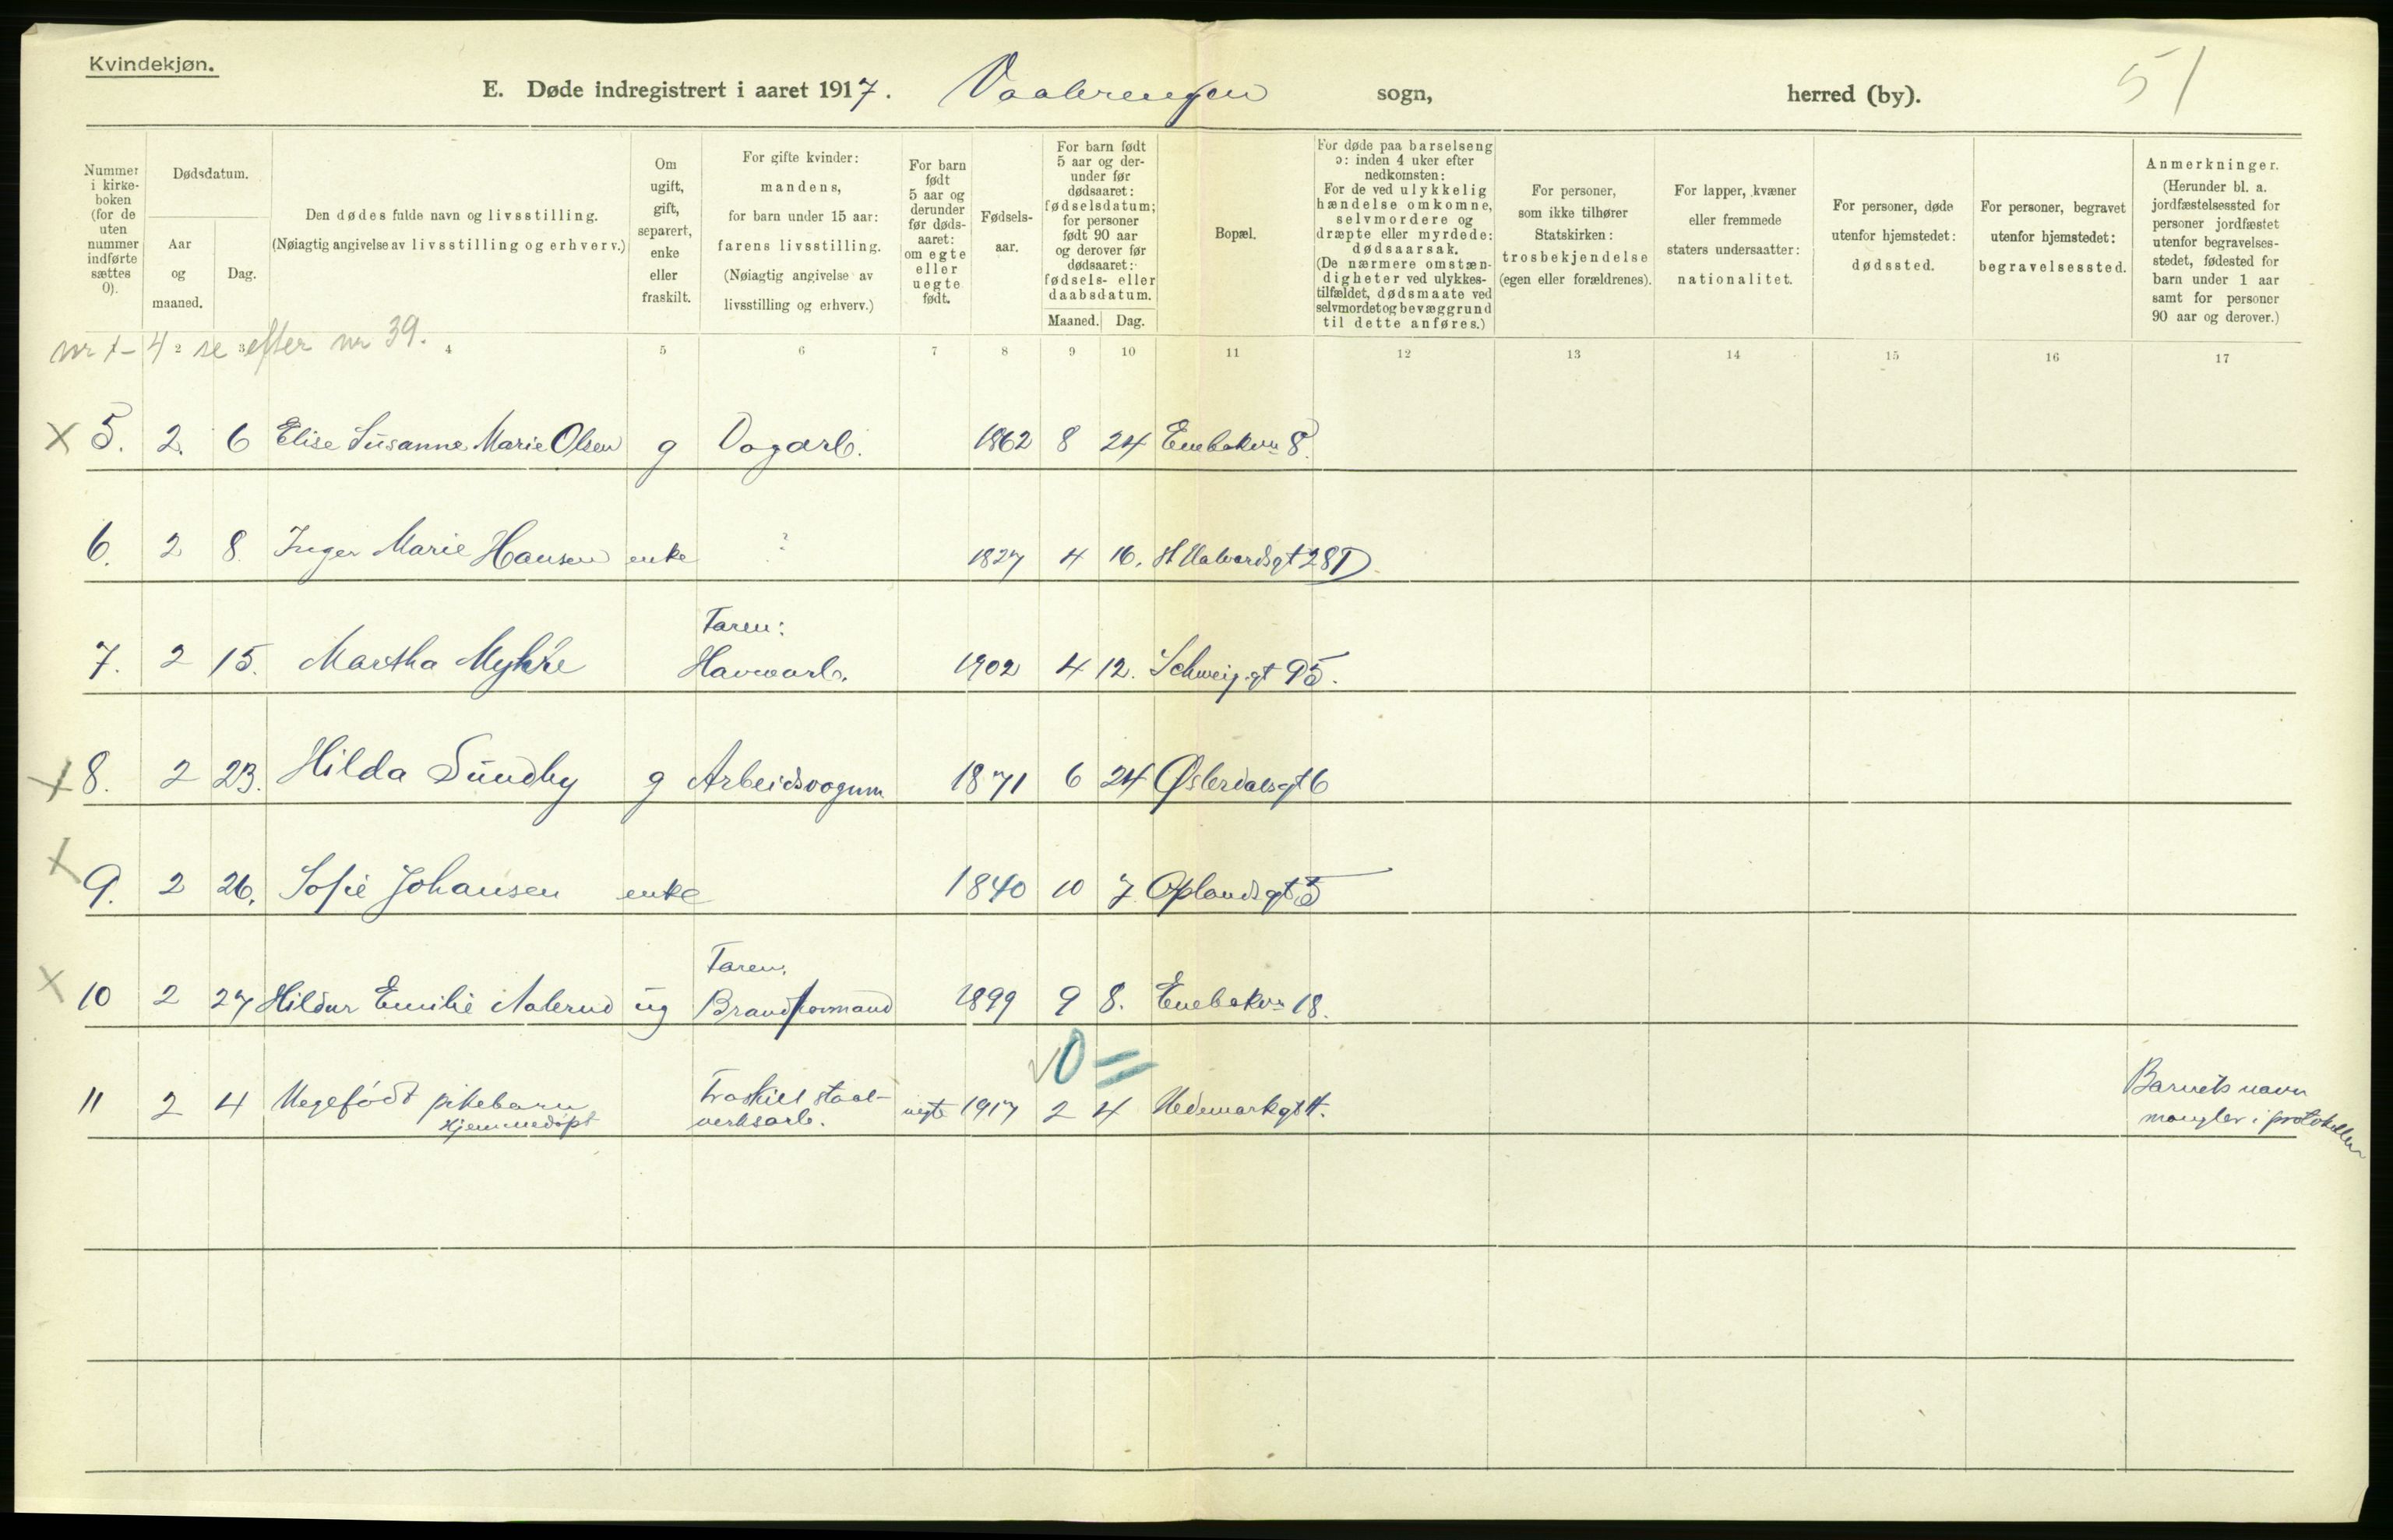 Kvindekjøn.
E. Døde indregistrert i aaret 1917. Vaalerengen sogn, herred (by). 51
Nummer i kirkeboken (for de uten nummer indførte sættes 0).
Dødsdatum.
Aar og maaned.
Dag.
Den dødes fulde navn og livsstilling.
(Nøiagtig angivelse av livsstilling og erhverv.)
Om ugift, gift, separert, enke eller fraskilt.
For gifte kvinder: mandens, for barn under 15 aar: farens livsstilling.
(Nøiagtig angivelse av livsstilling og erhverv.)
For barn født 5 aar og derunder før dødsaaret: om egte eller uegte født.
Fødselsaar.
For barn født 5 aar og derunder før dødsaaret: fødselsdatum; for personer født 90 aar og derover før dødsaaret: fødsels- eller daabsdatum.
Maaned. Dag.
Bopæl.
For døde paa barselseng ɔ: inden 4 uker efter nedkomsten:
For de ved ulykkelig hændelse omkomne, selvmordere og dræpte eller myrdede: dødsaarsak.
(De nærmere omstændigheter ved ulykkestilfældet, dødsmaate ved selvmordet og bevæggrund til dette anføres.)
For personer, som ikke tilhører Statskirken: trosbekjendelse (egen eller forældrenes).
For lapper, kvæner eller fremmede staters undersaatter: nationalitet.
For personer, døde utenfor hjemstedet: dødssted.
For personer, begravet utenfor hjemstedet: begravelsessted.
Anmerkninger.
(Herunder bl. a. jordfæstelsessted for personer jordfæstet utenfor begravelsesstedet, fødested for barn under 1 aar samt for personer 90 aar og derover.)
nr 1-4 se efter nr 39.
2 3 4 5 6 7 8 9 10 11 12 13 14 15 16 17
X 5. 2. 6 Elise Susanne Marie Olsen g Vogarb. 1862 8 24 Enebakvn 8.
6. 2 8. Inger Marie Hansen enke ? 1827 4 16. St Halvardsgt 28 D.
Faren:
7. 2 15. Martha Myhre Havnearb. 1902 4 12. Schweig.gt 95.
X 8. 2 23. Hilda Sundby g Arbeidsvognm 1871 6 24 Østerdalsgt 6
X 9. 2 26. Sofie Johansen enke 1840 10 7 Oplandsgt 5
Faren.
X 10 2 27 Hildur Emilie Aalerud ug Brandformand 1899 9 8. Enebakvn 18.
0 =
11 2 4 Uegefødt pikebarn Fraskilt staal- uegte 1917 2 4 Hedemarkgt 4. Barnets navn
Hjemmedøpt verksarb. mangler i protokollen